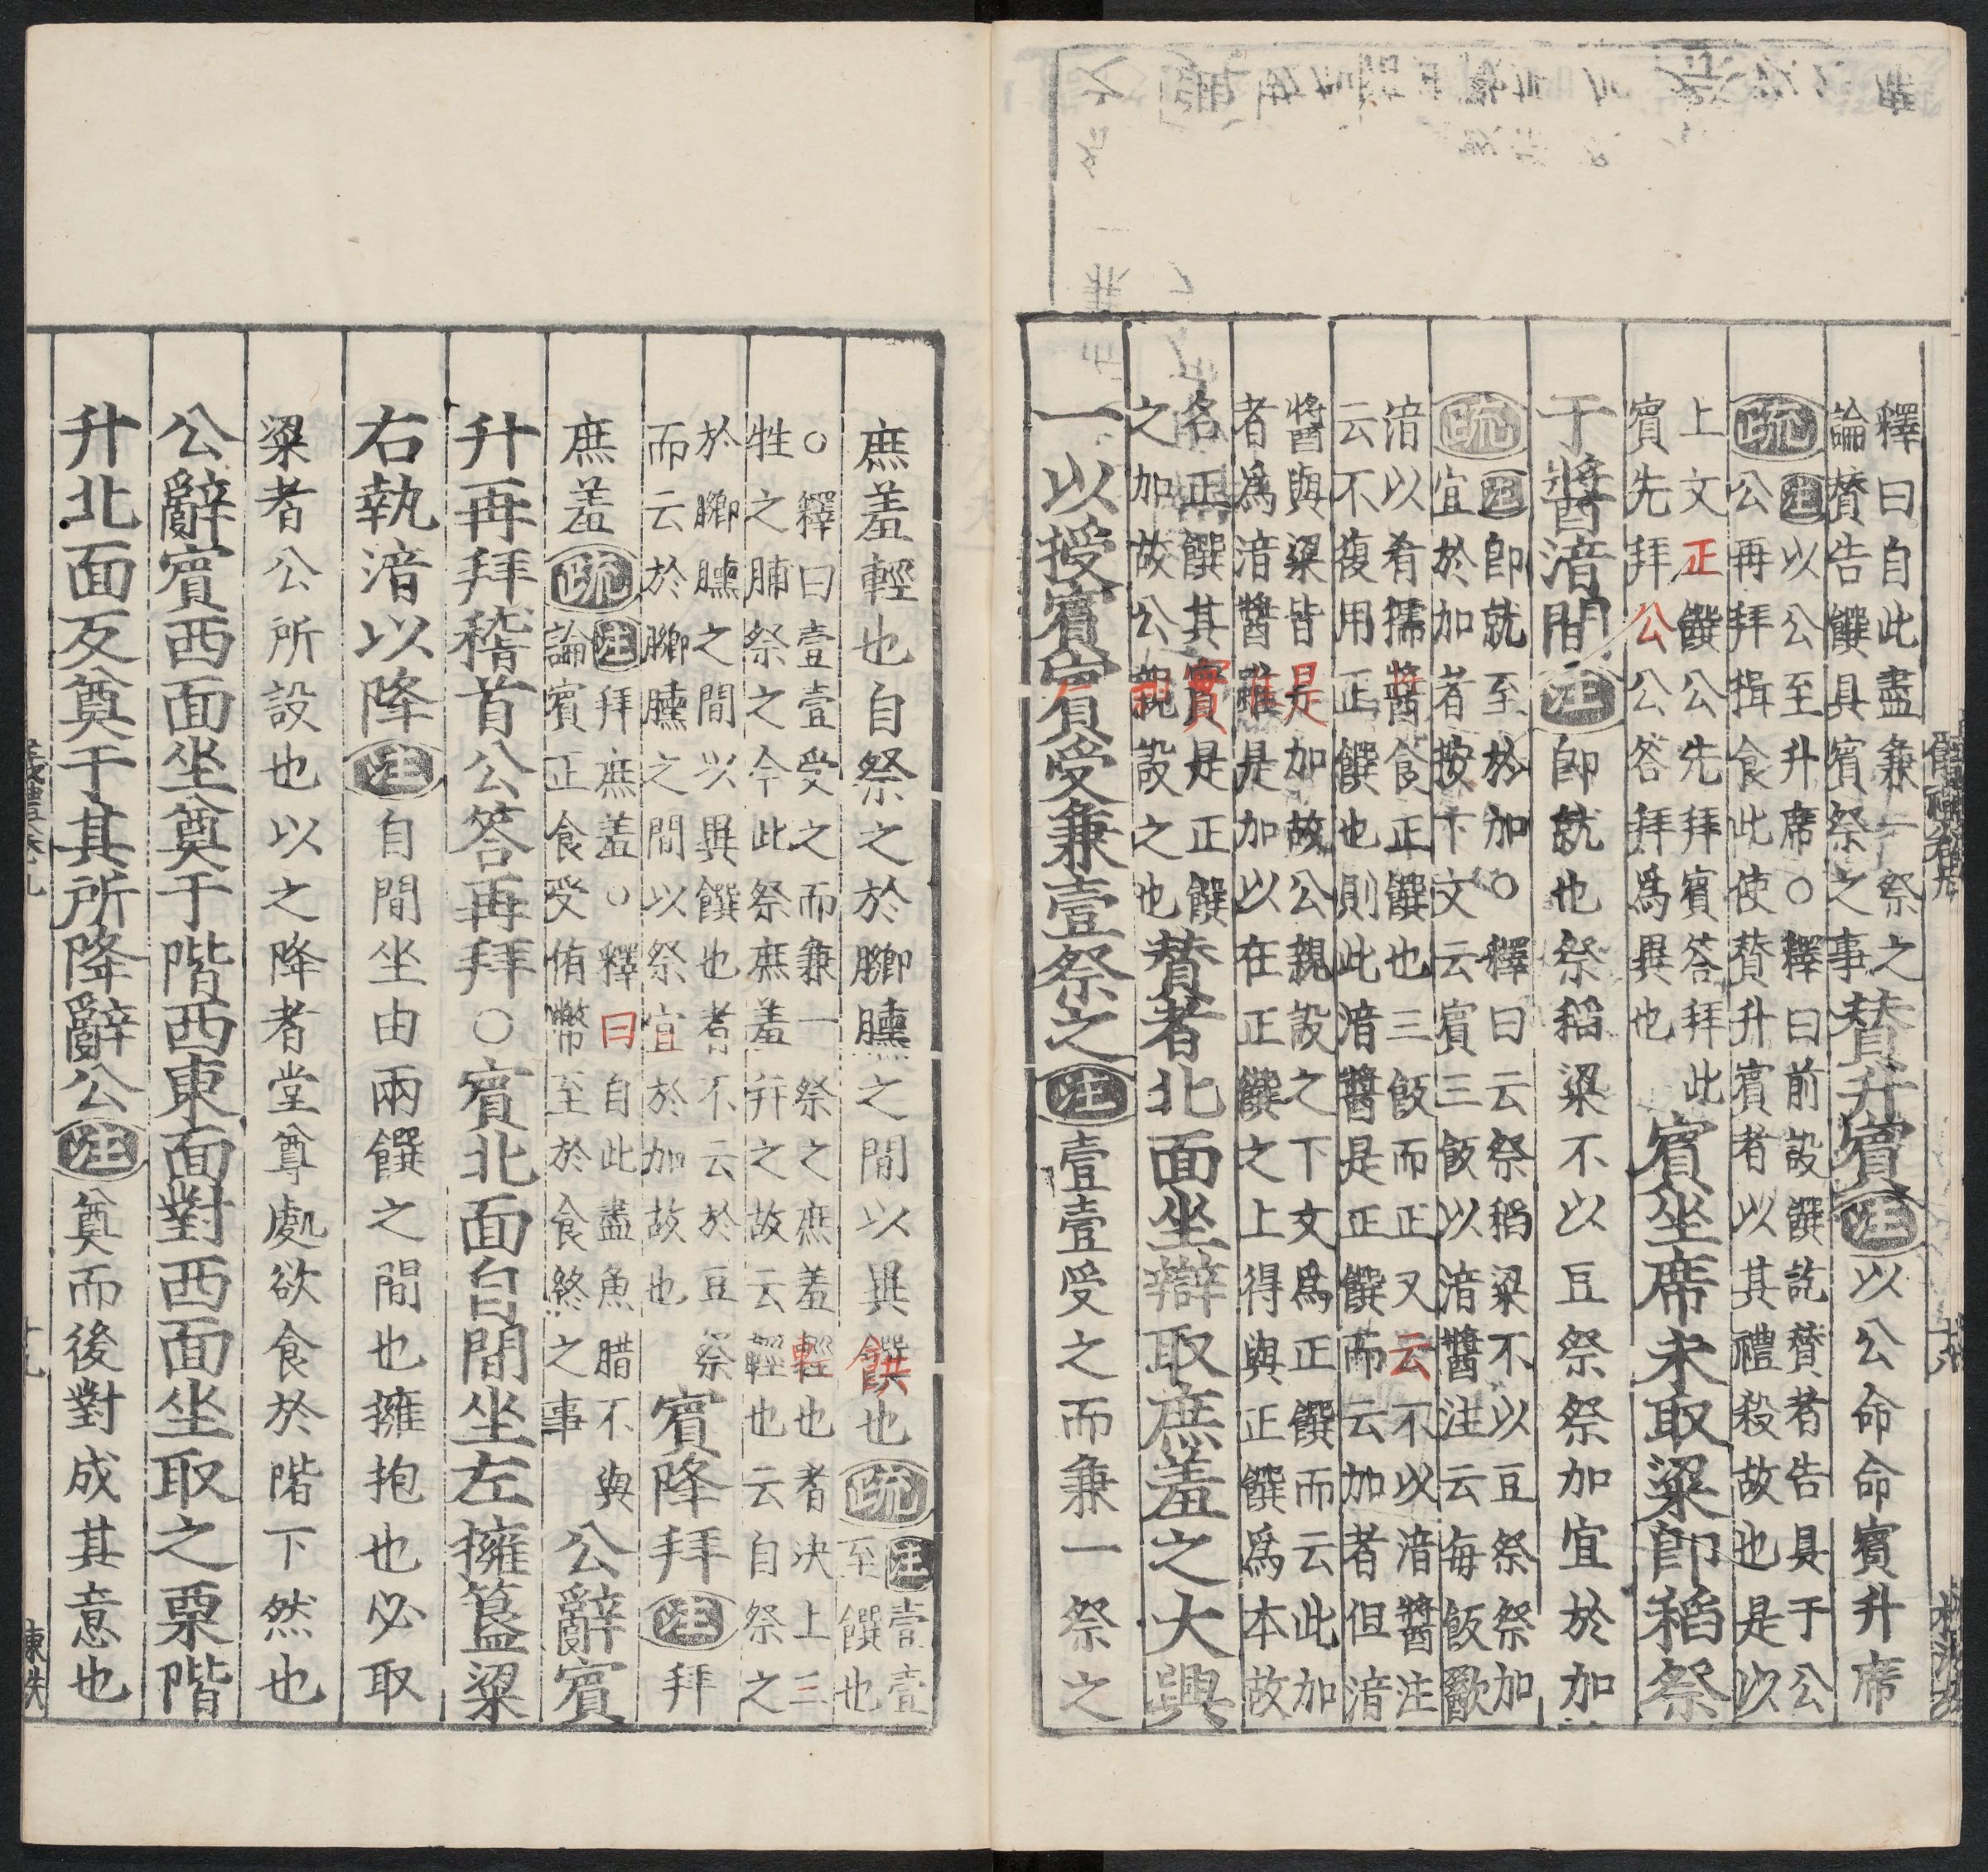 釋曰自此盡兼一祭之
論賛告饌具賓祭之事
賛升賓注以公命命賓升席
疏注以公至升席○釋曰前設饌訖賛者告具于公
公再拜揖食此使賛升賓者以其禮殺故也是以
上文正饌公先拜賓答拜此
賓先拜公公答拜爲異也
賓坐席末取粱卽稻祭
于醬湆間注卽就也祭稻粱不以豆祭祭加宜於加
疏注卽就至於加○釋曰云祭稻粱不以豆祭祭加
宜於加者按下文云賓三飯以湆醬注云每飯歠
湆以肴擩醬食正饌也三飯而正又云不以湆醬注
云不復用正饌也則此湆醬是正饌而云加者但湆
醬與粱皆是加故公親設之下文爲正饌而云此加
者爲湆醬雖是加以在正饌之上得與正饌爲本故
名正饌其實是正饌
之加故公親設之也
賛者北面坐辯取庶羞之大興
一以授賓賓受兼壹祭之注壹壹受之而兼一祭之
庶羞輕也自祭之於膷臐之間以異饌也疏注壹壹
至饌也
○釋曰壹壹受之而兼一祭之庶羞輕也者决上三
牲之肺祭之今此祭庶羞并之故云輕也云自祭之
於膷臐之間以異饌也者不云於豆祭
而云於膷臐之間以祭宜於加故也
賓降拜注拜
庶羞疏注拜庶羞○釋曰自此盡魚腊不與
論賓正食受侑幣至於食終之事
公辭賓
升再拜稽首公答再拜○賓北面自間坐左擁簠粱
右執湆以降注自間坐由兩饌之間也擁抱也必取
粱者公所設也以之降者堂尊處欲食於階下然也
公辭賓西面坐奠于階西東面對西面坐取之栗階
升北面反奠于其所降辭公注奠而後對成其意也